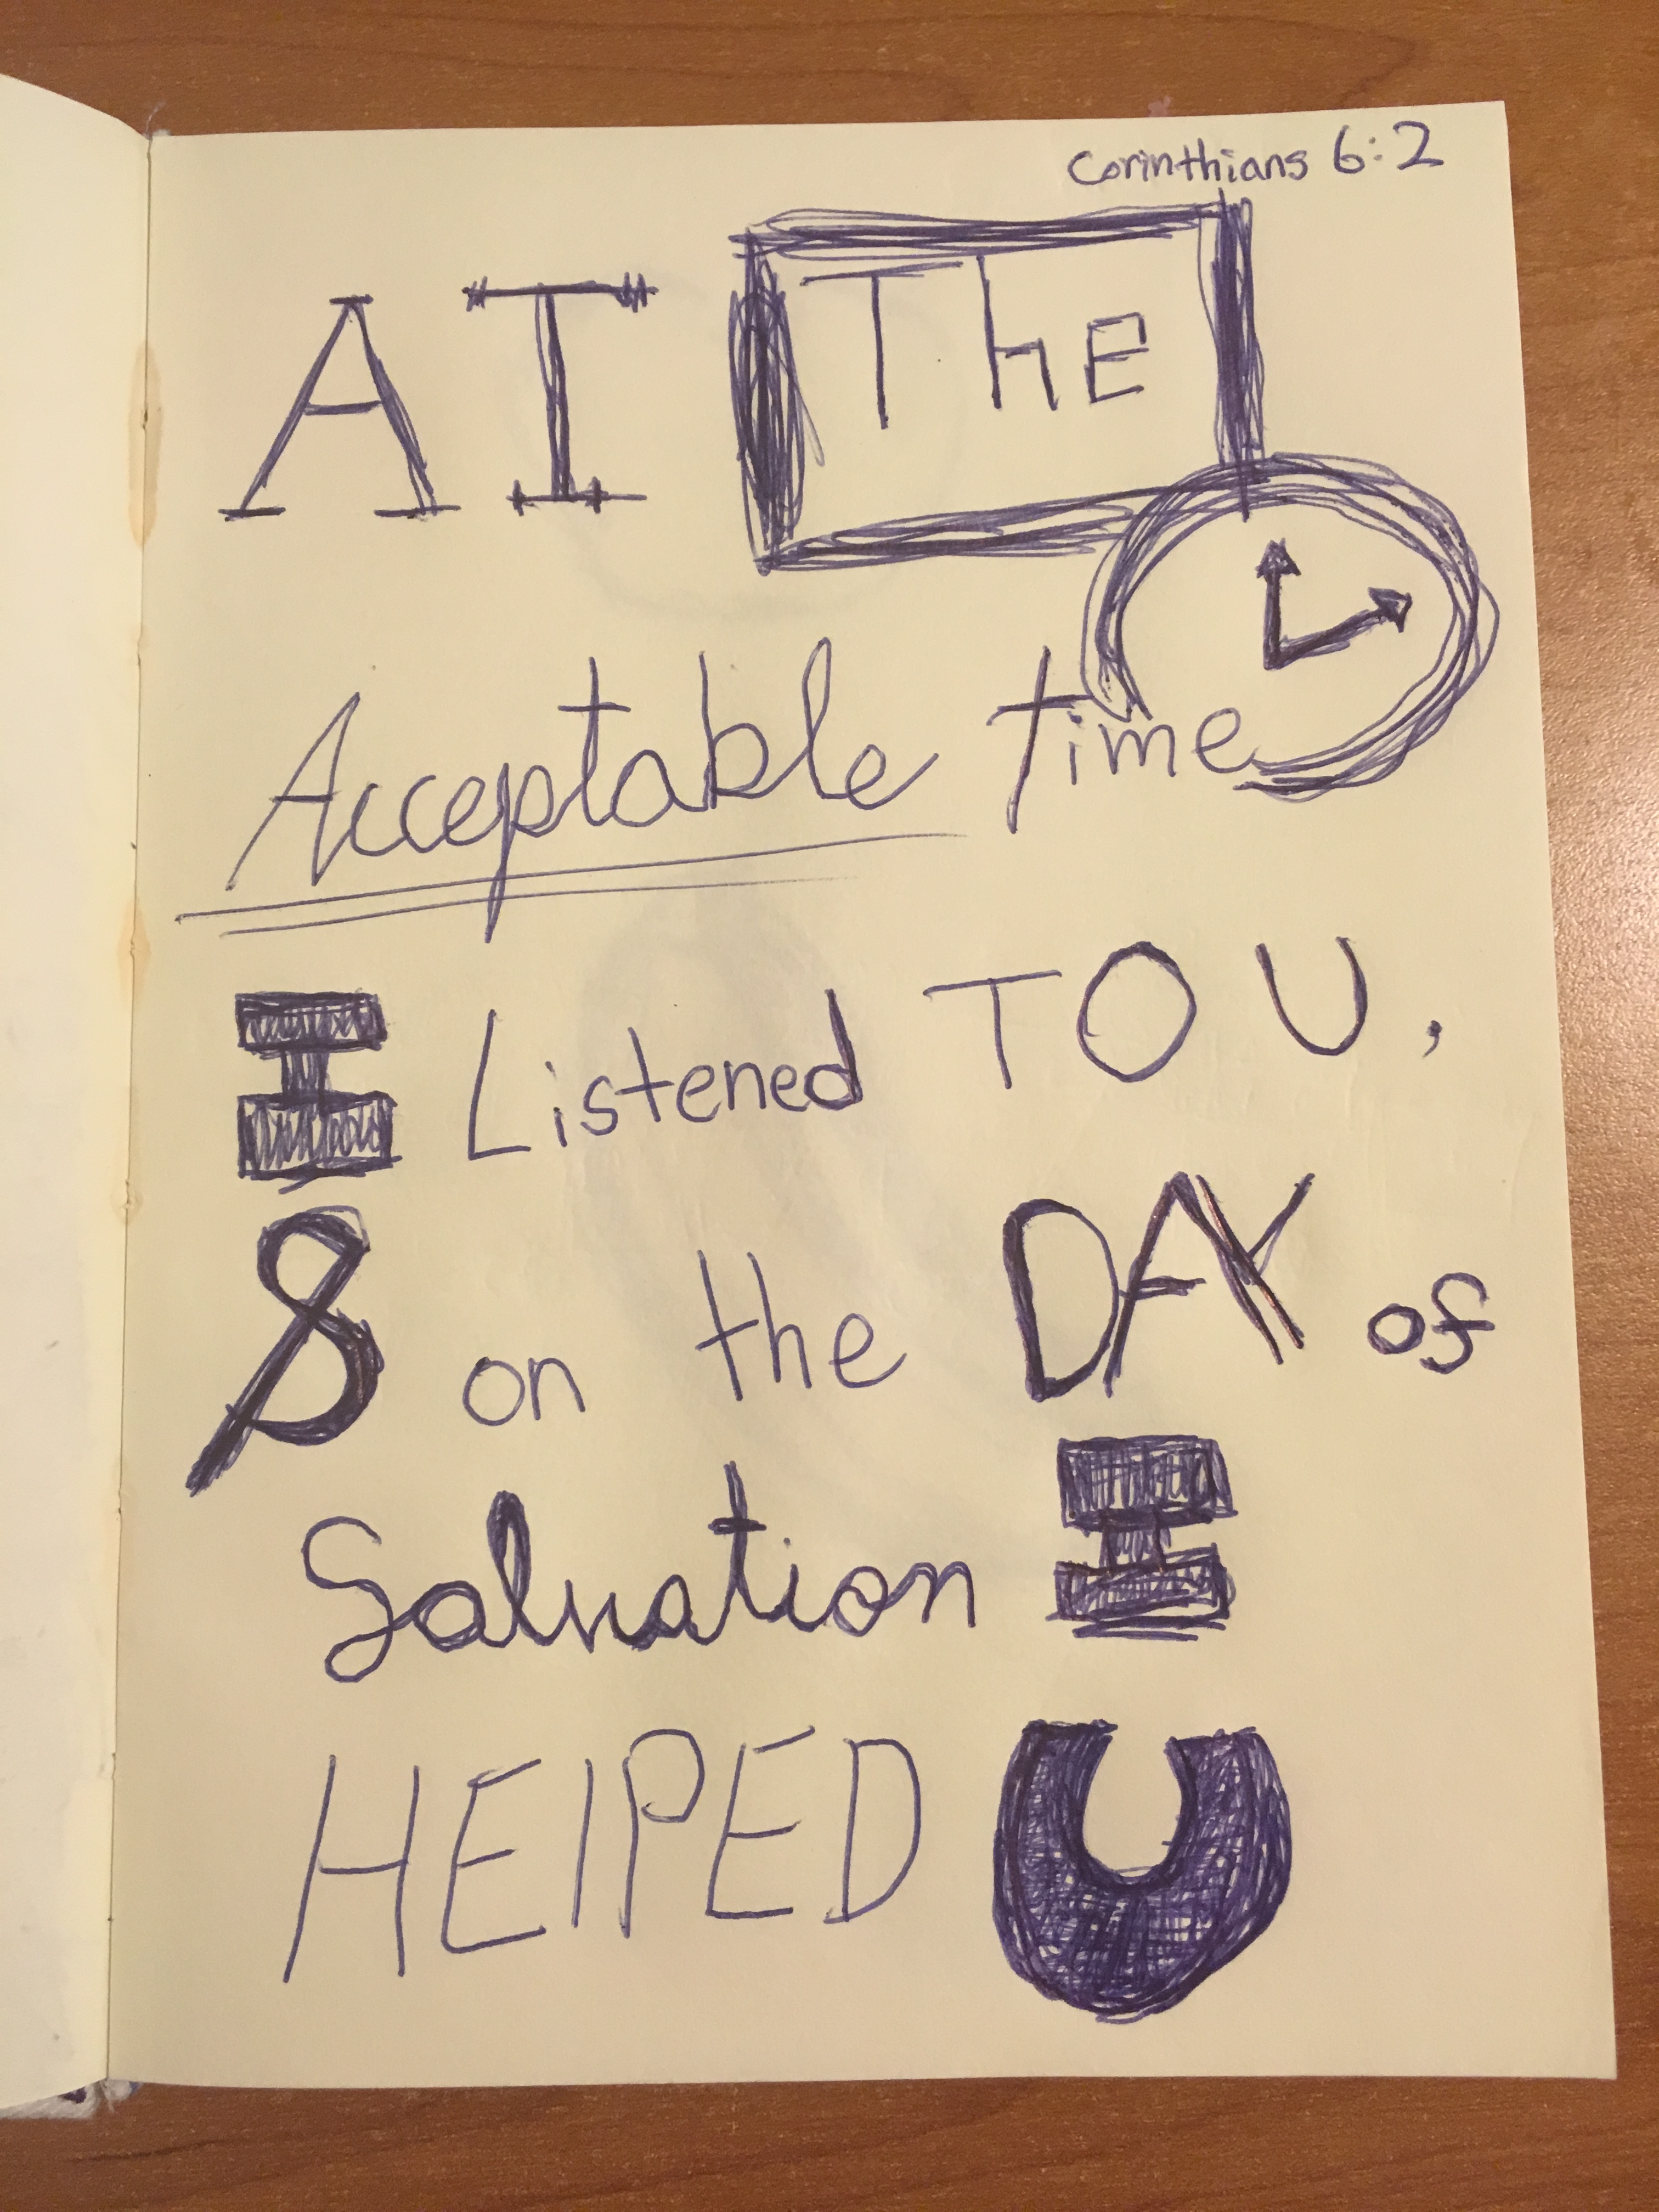 Corinthians 6:2
AT The
Acceptable time
I Listened TO U,
& on the DAY of
Salvation I
HElPED U